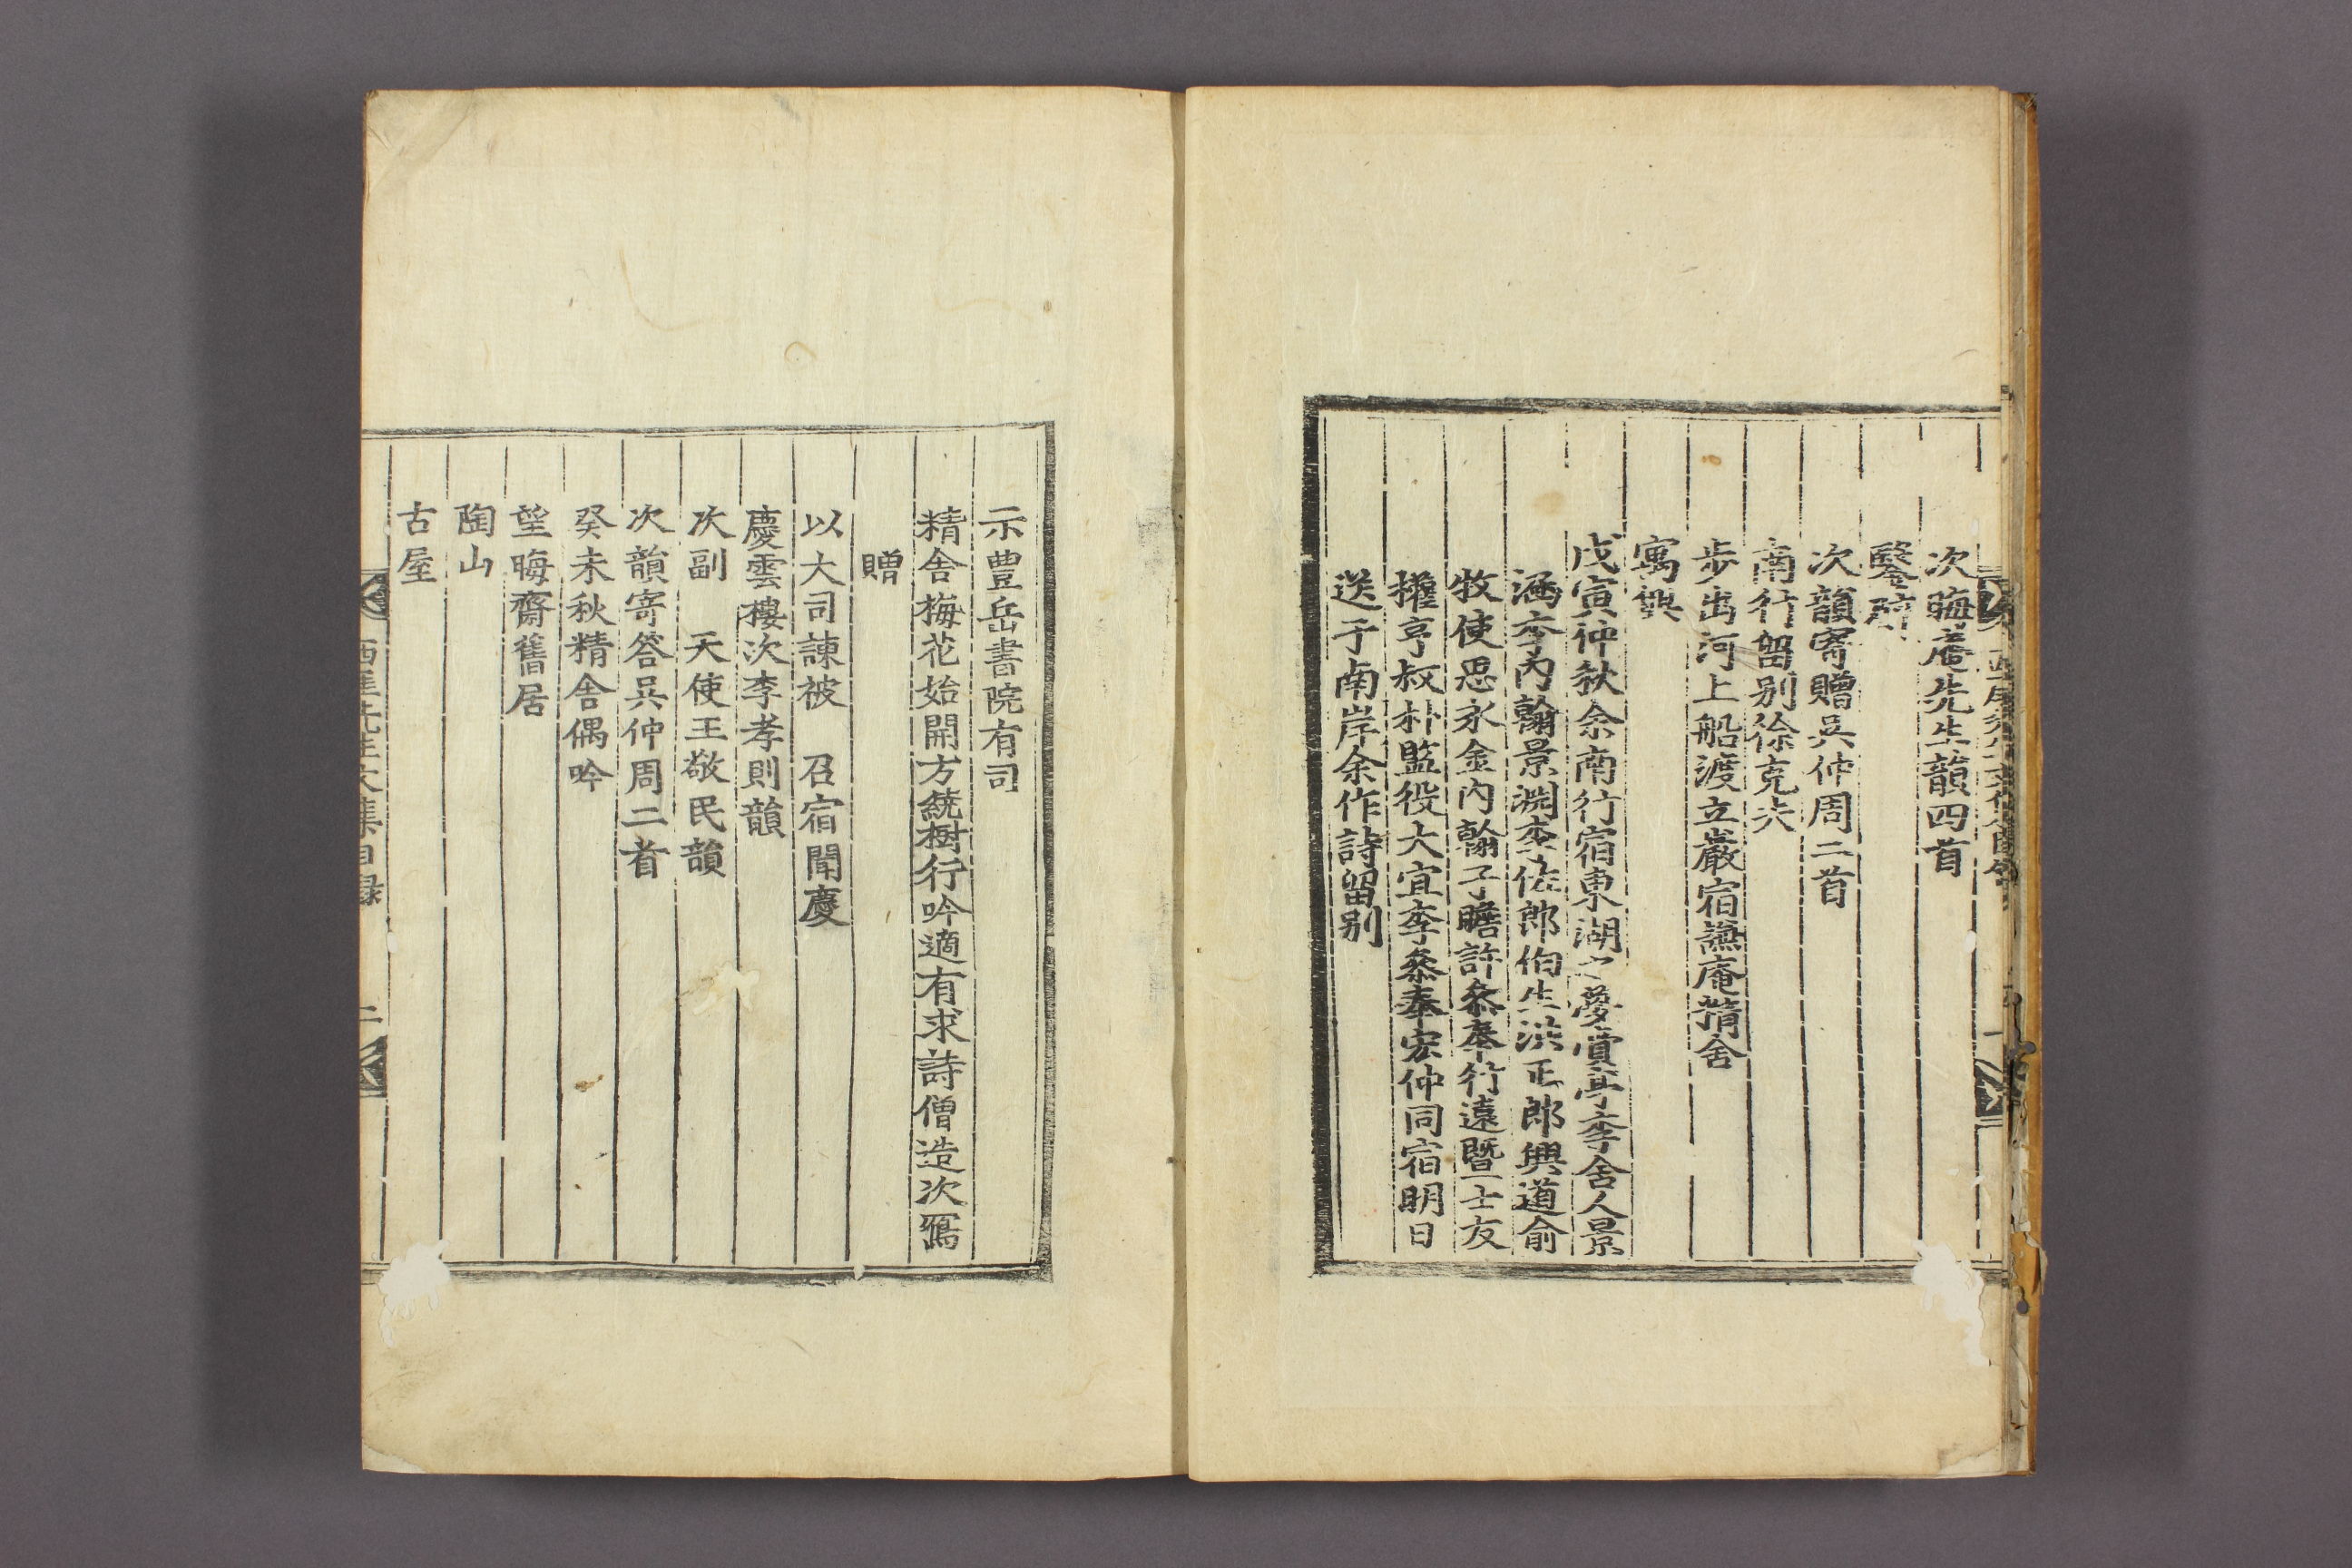 次晦庵先生韻四首
鑿疏
次韻寄贈吳仲周二首
南行留別徐克夫
步出河上船渡立巖宿謙庵精舍
寓興
戊寅仲秋余南行宿東湖之夢賚亭李舍人景
涵李內翰景淵李佐郎伯生洪正郎興道俞
牧使思永金內翰子瞻許叅奉行遠曁士友
權亨叔朴監役大宜李叅奉宏仲同宿明日
送于南岸余作詩留別
示豊岳書院有司
精舍梅花始開方繞樹行吟適有求詩僧造次寫
贈
以大司諫被 召宿聞慶
慶雲樓次李孝則韻
次副 天使王敬民韻
次韻寄答吳仲周二首
癸未秋精舍偶吟
望晦齋舊居
陶山
古屋
西厓先生文集目錄 二